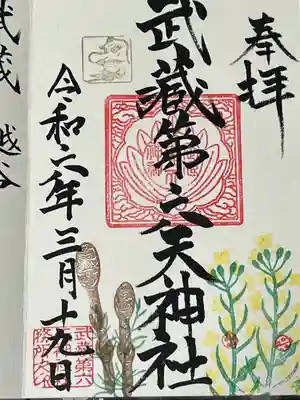 奉拝
武蔵第六天神社
令和六年三月十九日
武蔵 越谷
武蔵第六